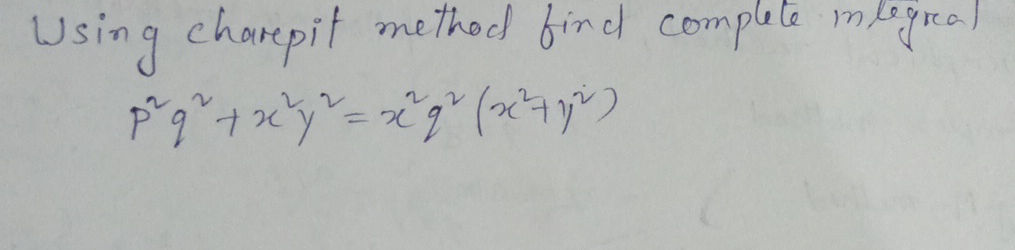 Using charepit method find complete integral
p²q² + x²y² = x²q² (x²+y²)